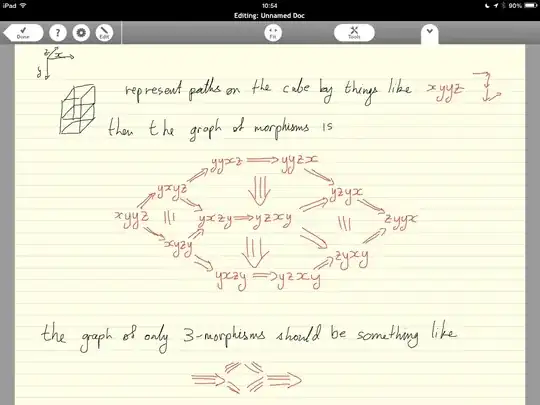 iPad 10:54 90%
Editing: Unnamed Doc
Done ? Edit Fit Tools
z x
y
represent paths on the cube by things like xyyz
then the graph of morphisms is
yyxz ⇒ yyzx
yxyz yzyx
xyyz ||| yxzy ⇒ yzxy ||| zyyx
xyzy zyxy
yxzy ⇒ yzxy
the graph of only 3-morphisms should be something like